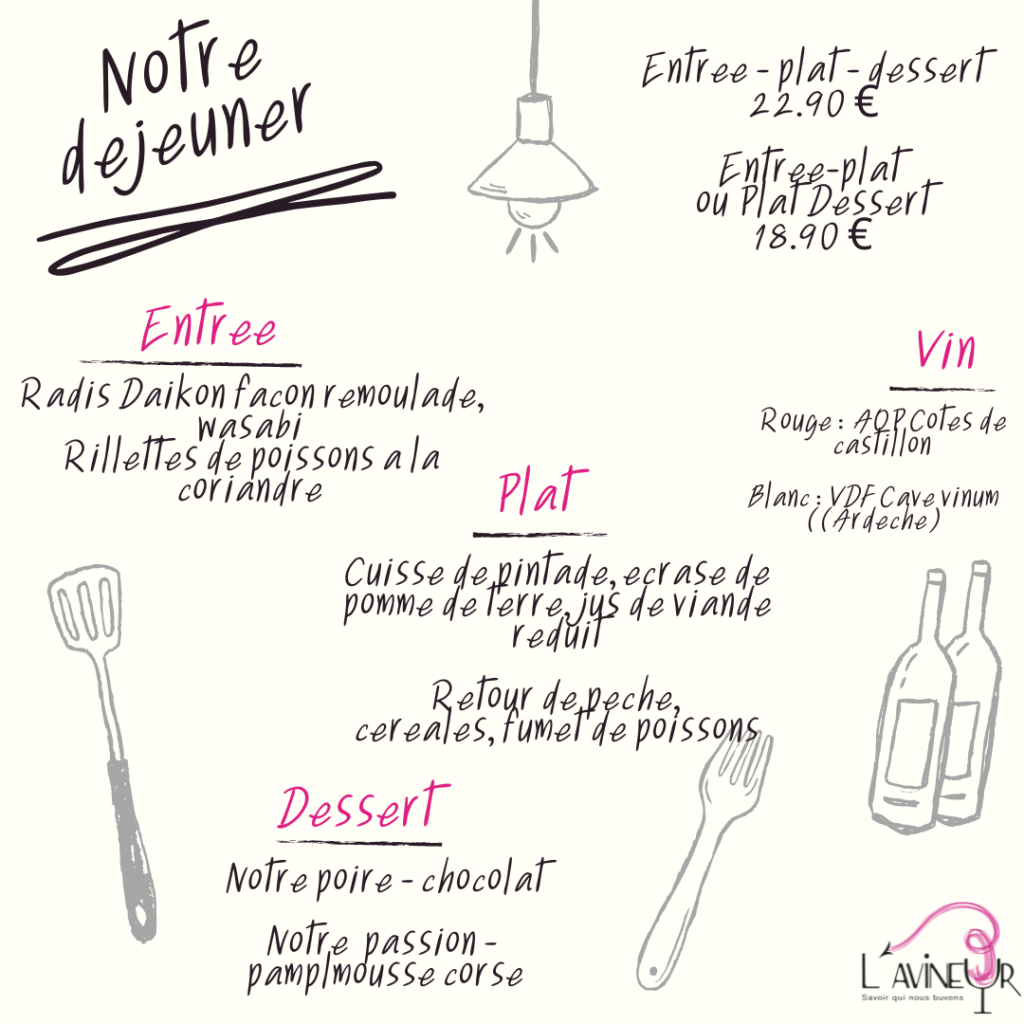 Notre
dejeuner
Entree - plat - dessert
22.90 €
Entree-plat
ou Plat Dessert
18.90 €
Entree
Radis Daikon facon remoulade,
wasabi
Rillettes de poissons a la
coriandre
Vin
Rouge : AOP Cotes de
castillon
Blanc : VDF Cave vinum
((Ardeche)
Plat
Cuisse de pintade, ecrase de
pomme de terre, jus de viande
reduit
Retour de peche,
cereales, fumet de poissons
Dessert
Notre poire - chocolat
Notre passion -
pamplmousse corse
L'AVINEUR
Savoir qui nous buvons